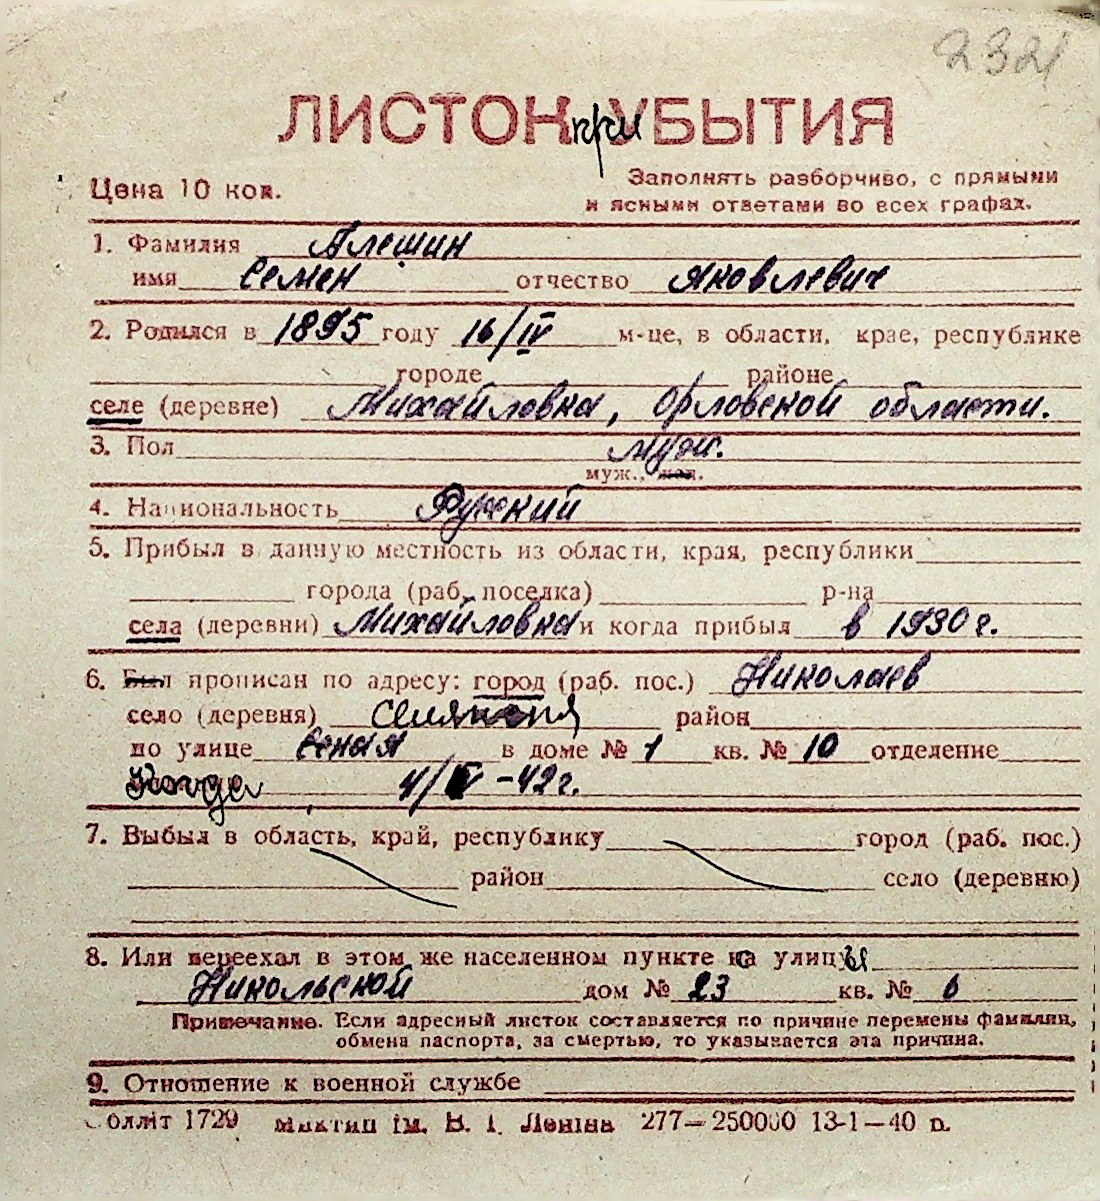 2321
ЛИСТОК при УБЫТИЯ
Цена 10 коп.
Заполнять разборчиво, с прямыми
и ясными ответами во всех графах.
1. Фамилия Алешин
имя Семен отчество Яковлевич
2. Родился в 1895 году 16/IV м-це, в области, крае, республике
городе районе
селе (деревне) Михайловка, Орловской области.
3. Пол муж.
муж., жен.
4. Национальность Русский
5. Прибыл в данную местность из области, края, республики
города (раб. поселка) р-на
села (деревни) Михайловка и когда прибыл в 1930 г.
6. Был прописан по адресу: город (раб. пос.) Николаев
село (деревня) район
по улице Сеная в доме № 1 кв. № 10 отделение
Когда 4/ -42 г.
7. Выбыл в область, край, республику город (раб. пос.)
район село (деревню)
8. Или переехал в этом же населенном пункте с улицы
Никольской дом № 23 кв. № 6
Примечание. Если адресный листок составляется по причине перемены фамилии,
обмена паспорта, за смертью, то указывается эта причина.
9. Отношение к военной службе
Облліт 1729 ім. В. І. Леніна 277—250000 13-1—40 р.